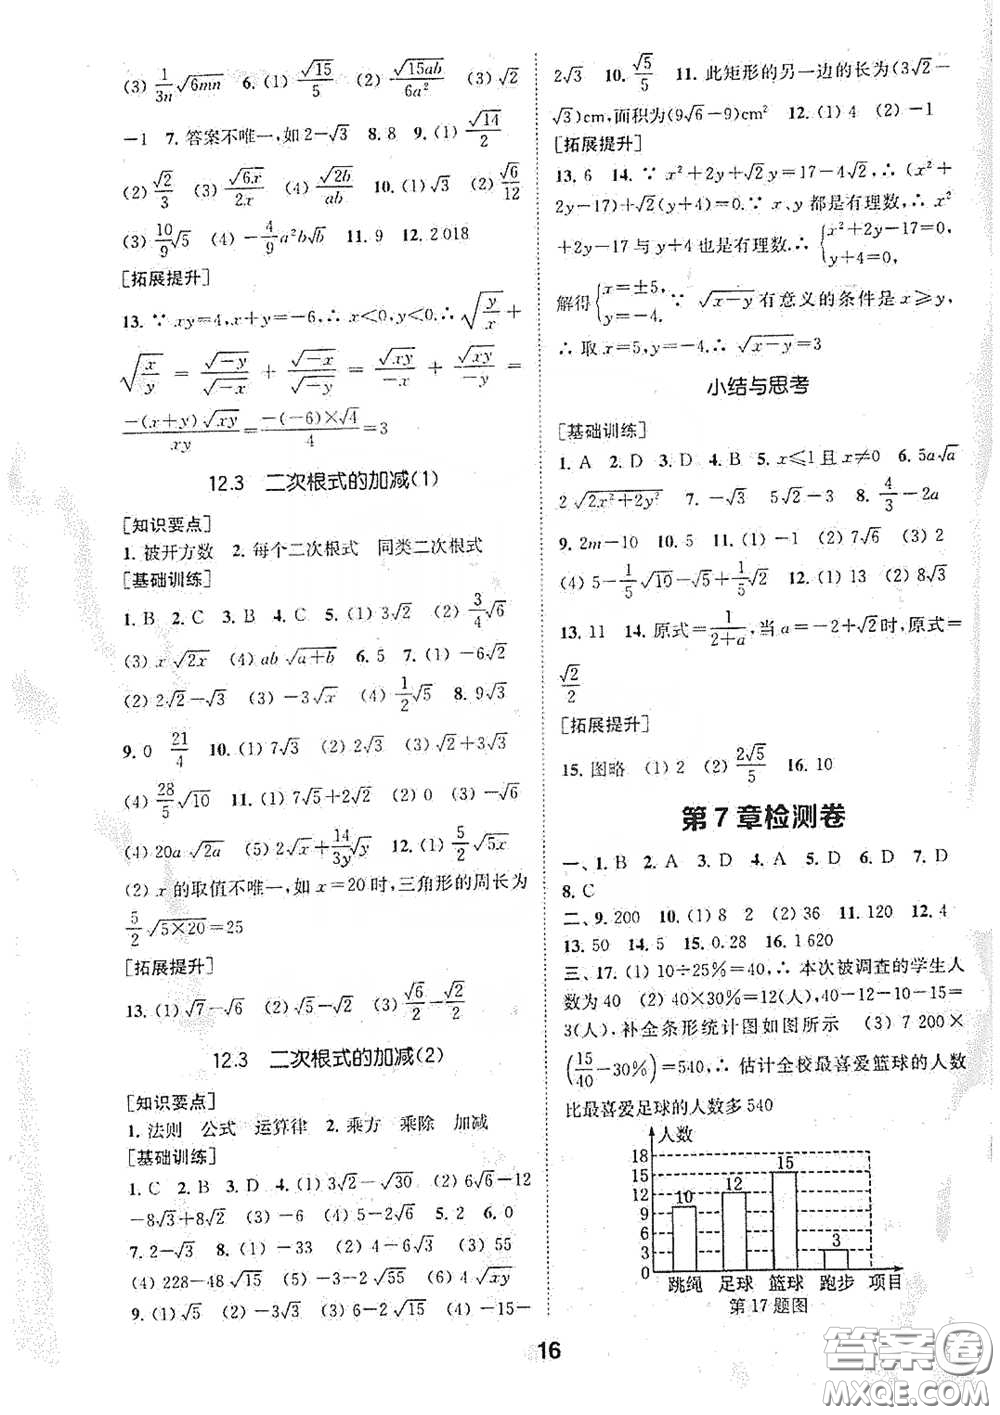 (3) 1/(3n)√6mn  6. (1) √15/5  (2) √15ab/(6a²)  (3) √2
−1  7. 答案不唯一,如 2−√3  8. 8  9. (1) √14/2
(2) √2/3  (3) √6x/(2x)  (4) √2b/(ab)  10. (1) √3  (2) √6/12
(3) 10/9√5  (4) −4/9a²b√b  11. 9  12. 2 018
[拓展提升]
13. ∵ xy=4,x+y=−6,∴ x<0,y<0.∴ √(y/x) +
√(x/y) = √−y/√−x + √−x/√−y = √xy/−x + √xy/−y =
−(x+y)√xy/xy = −(−6)×√4/4 = 3
12.3 二次根式的加减(1)
[知识要点]
1. 被开方数  2. 每个二次根式  同类二次根式
[基础训练]
1. B  2. C  3. B  4. C  5. (1) 3√2  (2) 3/4√6
(3) x√2x  (4) ab√(a+b)  6. 5  7. (1) −6√2
(2) 2√2−√3  (3) −3√x  (4) 1/2√5  8. 9√3
9. 0  21/4  10. (1) 7√3  (2) 2√3  (3) √2+3√3
(4) 28/5√10  11. (1) 7√5+2√2  (2) 0
(4) 20a√2a  (5) 2√x+14/(3y)√y  12. (1) 5/2√5x
(2) x 的取值不唯一,如 x=20 时,三角形的周长为
5/2√(5×20)=25
[拓展提升]
13. (1) √7−√6  (2) √5−√2  (3) √6/2−√2/2
12.3 二次根式的加减(2)
[知识要点]
1. 法则  公式  运算律  2. 乘方  乘除  加减
[基础训练]
1. C  2. B  3. D  4. (1) 3√2−√30  (2) 6√6−12
−8√3+8√2  (3) −6  (4) 5−2√6  5. 2  6. 0
7. 2−√3  8. (1) −33  (2) 4−6√2  (3) 55
(4) 228−48√15  (5) −3−2√55  (6) 4√xy
9. (1) √5  (2) −3√2  (3) 6−2√15  (4) −15−
2√3  10. √5/5  11. 此矩形的另一边的长为(3√2−
√3)cm,面积为(9√6−9)cm²  12. (1) 4  (2) −1
[拓展提升]
13. 6  14. ∵ x²+2y+√2y=17−4√2,∴ (x²+
2y−17)+√2(y+4)=0.∵ x、y 都是有理数,∴ x²
+2y−17 与 y+4 也是有理数.∴ {x²+2y−17=0, y+4=0,
解得{x=±5, y=−4. ∵ √(x−y)有意义的条件是 x≥y,
∴ 取 x=5,y=−4.∴ √(x−y)=3
小结与思考
[基础训练]
1. A  2. D  3. D  4. B  5. x≤1 且 x≠0  6. 5a√a
2√(2x²+2y²)  7. −√3  5√2−3  8. 4/3−2a
9. 2m−10  10. 5  11. (1) −1  (2) 7√6  (3) 2
(4) 5−1/5√10−√5+1/5√2  12. (1) 13  (2) 8√3
13. 11  14. 原式=1/(2+a),当 a=−2+√2时,原式=
√2/2
[拓展提升]
15. 图略  (1) 2  (2) 2√5/5  16. 10
第 7 章检测卷
一、1. B  2. A  3. D  4. A  5. D  6. D  7. D
8. C
二、9. 200  10. (1) 8  2  (2) 36  11. 120  12. 4
13. 50  14. 5  15. 0.28  16. 1 620
三、17. (1) 10÷25%=40,∴ 本次被调查的学生人
数为 40  (2) 40×30%=12(人),40−12−10−15=
3(人),补全条形统计图如图所示  (3) 7 200×
(15/40−30%)=540,∴ 估计全校最喜爱篮球的人数
比最喜爱足球的人数多 540
人数
18
15
12
9
6
3
0
10
12
15
3
跳绳 足球 篮球 跑步 项目
第 17 题图
16
答案卷
MXQE.COM